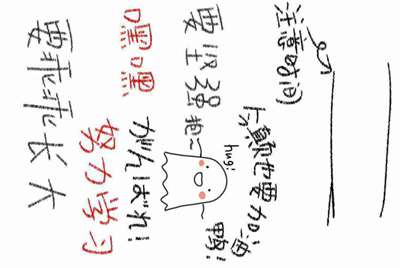 注意时间
也要加油
鸭!
hug!
要坚强抱~
がんばれ!
嘿嘿
努力学习
要乖乖长大